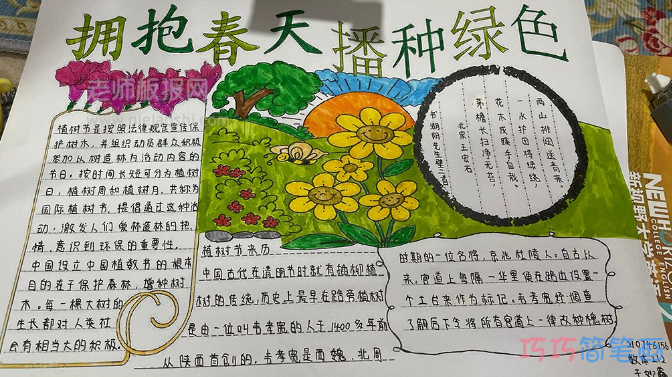 拥抱春天 播种绿色
老师板报网
植树节是按照法律规定宣传保
护树木,并组织动员群众积极
参加以树造林为活动内容的
节日,按时间长短可分为植树
日,植树周和植树月,共称为
国际植树节,提倡通过这种活
动,激发人们爱林造林的热
情,意识到环保的重要性。
中国设立中国植数节的根本
目的在于保护森林,增种树
木。每一棵大树的
生长都对人类社
会有相当大的积极。
两山排闼送青来。
一水护田将绿绕,
花木成畦手自栽。
茅檐长扫净无苔,
北宋 王安石
书湖阴先生壁二首
植树节来历
中国古代在清明节时就有插柳植
树的传统,而史上最早在路旁植树
是由一位叫韦孝宽的人于1400多年前
从陕西首创的,韦孝宽是西魏、北周
时期的一位名将,京兆杜陵人。自古以
来,官道上每隔一华里便在路边设置一
个土台来作为标记。韦孝宽经调查
了解后下令将所有官道上一律改种槐树
新视野大学英语
巧巧简笔画